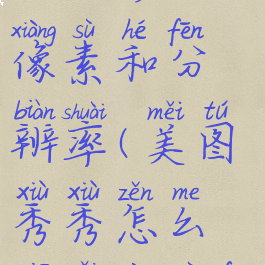 xiàng sù hé fēn
像素和分
biàn shuài měi tú
辨率(美图
xiù xiù zěn me
秀秀怎么